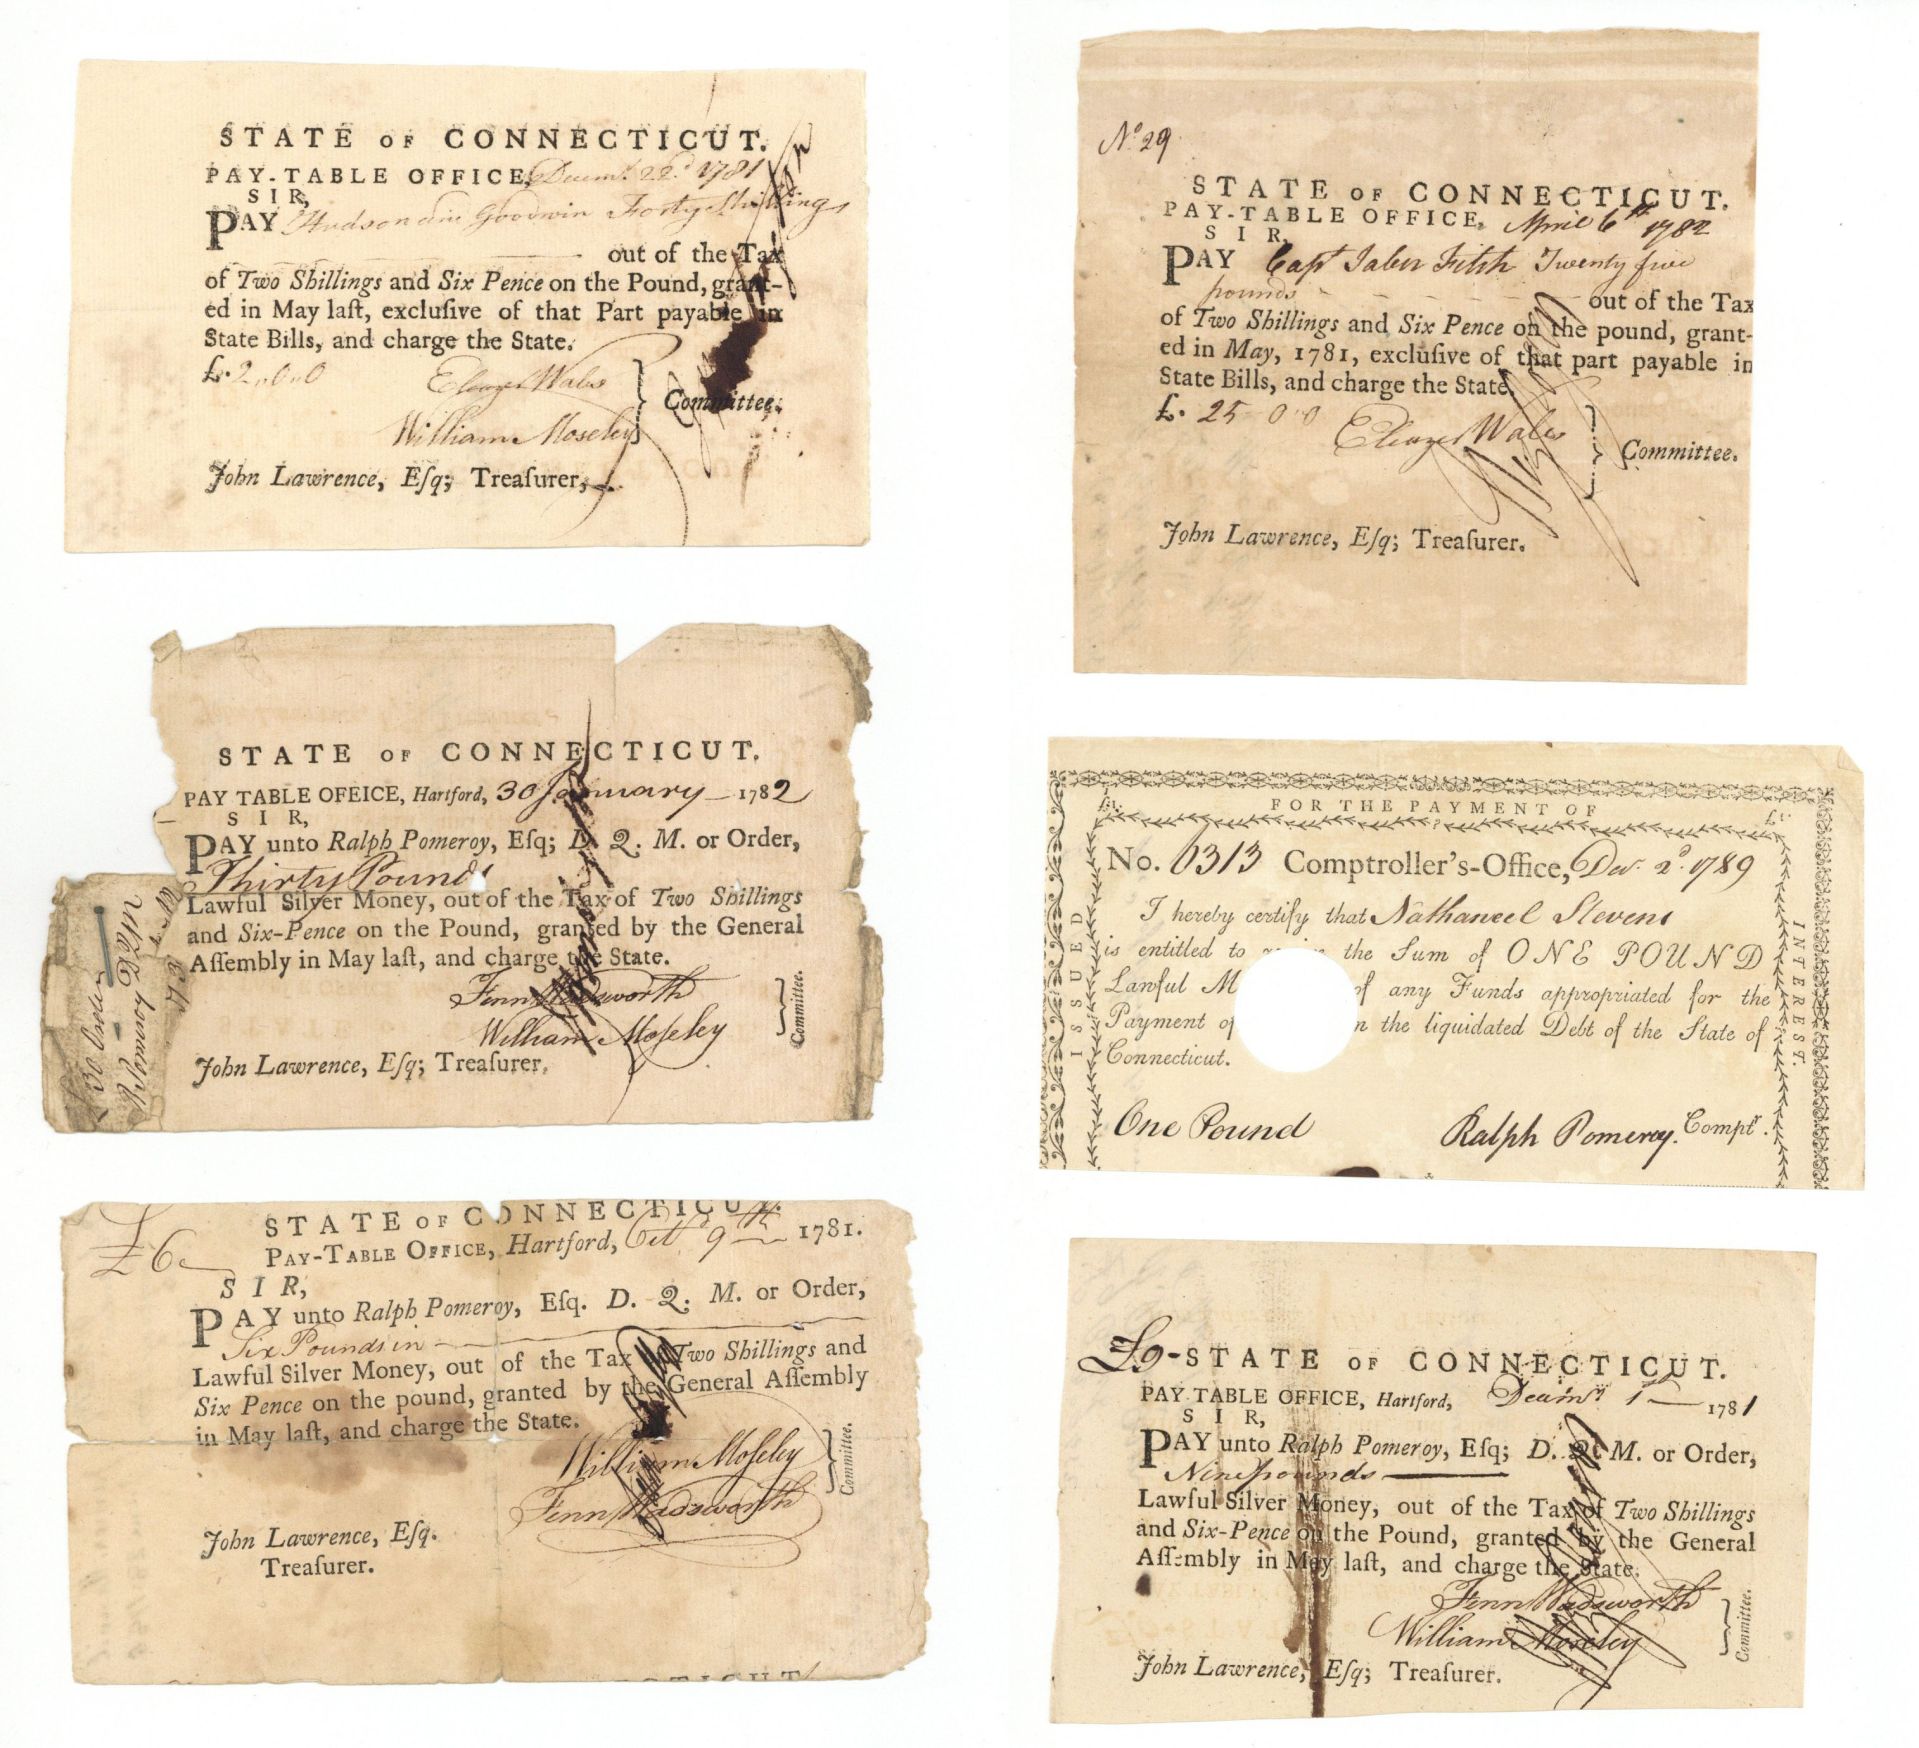 STATE OF CONNECTICUT.
PAY-TABLE OFFICE, Decemr. 22d. 1781
SIR,
PAY Hudson and Goodwin Forty Shillings
out of the Tax
of Two Shillings and Six Pence on the Pound, grant-
ed in May laſt, excluſive of that Part payable in
State Bills, and charge the State.
£. 2,,0,,0
Eleazer Wales
William Moseley
Committee.
John Lawrence, Eſq; Treaſurer,
STATE OF CONNECTICUT.
PAY TABLE OFEICE, Hartford, 30 January 1782
SIR,
PAY unto Ralph Pomeroy, Eſq; D. Q. M. or Order,
Thirty Pounds
Lawful Silver Money, out of the Tax of Two Shillings
and Six-Pence on the Pound, granted by the General
Aſſembly in May laſt, and charge the State.
Fenn Wadsworth
William Moſeley
Committee.
John Lawrence, Eſq; Treaſurer.
£30 Order
R Pomeroy DQM
STATE OF CONNECTICUT.
£6
PAY-TABLE OFFICE, Hartford, Octr 9th 1781.
SIR,
PAY unto Ralph Pomeroy, Eſq. D. Q. M. or Order,
Six Pounds in
Lawful Silver Money, out of the Tax of Two Shillings and
Six Pence on the pound, granted by the General Aſſembly
in May laſt, and charge the State.
William Moſeley
Fenn Wadsworth
Committee.
John Lawrence, Eſq.
Treaſurer.
No. 29
STATE OF CONNECTICUT.
PAY-TABLE OFFICE, April 6th 1782
SIR,
PAY Capt Jabez Fitch Twenty five
pounds
out of the Tax
of Two Shillings and Six Pence on the pound, grant-
ed in May, 1781, excluſive of that part payable in
State Bills, and charge the State.
£. 25 - 0 - 0
Eleazer Wales
Committee.
John Lawrence, Eſq; Treaſurer.
FOR THE PAYMENT OF
£1.
£1
ISSUED
INTEREST.
No. 0313 Comptroller's-Office, Decr. 2d. 1789
I hereby certify that Nathaneel Stevens
is entitled to the Sum of ONE POUND
Lawful M of any Funds appropriated for the
Payment of n the liquidated Debt of the State of
Connecticut.
One Pound
Ralph Pomeroy. Comptr.
£9-STATE OF CONNECTICUT.
PAY TABLE OFFICE, Hartford, Decemr 1st 1781
SIR,
PAY unto Ralph Pomeroy, Eſq; D. Q. M. or Order,
Nine pounds
Lawful Silver Money, out of the Tax of Two Shillings
and Six-Pence on the Pound, granted by the General
Aſſembly in May laſt, and charge the State.
Fenn Wadsworth
William Moseley
Committee.
John Lawrence, Eſq; Treaſurer.